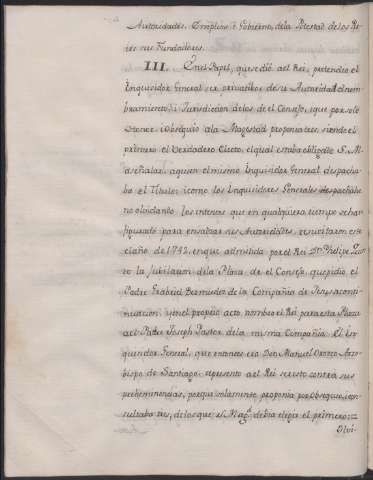 Autoridades. Imperio i Gobierno, de la Potestad de los Re-
ies sus Fundadores.
III. En el Papel, que se dió al Rei, pretendia el
Inquisidor General ser privativo de su Autoridad el nom-
bramiento, i Jurisdiccion de los de el Consejo, i que por solo
Atencion i Obsequio a la Magestad proponia tres, siendo el
primero el Verdadero Electo, el qual estaba obligado S. M.
a señalar, a quien el mismo Inquisidor General despacha-
ba el Titulo: i como los Inquisidores Generales
no olvidando los intereses que en qualquiera tiempo se han
figurado para ensalzar sus Autoridades, resucitaron este
el año de 1742, en que admitida por el Rei Dn. Phelipe Quin-
to la Jubilacion de la Plaza de el Consejo, que pidió el
Padre Grabriel Bermudez de la Compañia de Jesus, a conti-
nuacion, i en el propio acto, nombró el Rei para esta Plaza
a el Padre Joseph Pastor de la misma Compañia. El In-
quisidor General, que entonces era Don Manuel Orozco Arzo-
bispo de Santiago, representó a el Rei ser esto contra sus
preheminencias, porque solamente proponia por Obsequio, i con-
sultaba tres, de los que su Magd. debia elegir el primero:=
Olvi-